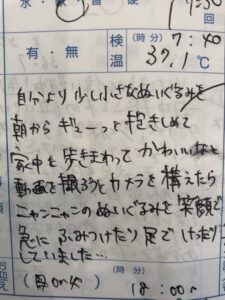 水・軟・普・硬
7:30
回
有・無
検温
(時分) 7:40
37.1℃
自分より少し小さなぬいぐるみを
朝からギューっと抱きしめて
家中を歩きまわってかわいいなと
動画を撮ろうとカメラを構えたら
ニャンニャンのぬいぐるみを笑顔で
急にふみつけたり足でけったり
していました…
お迎え
(母or父)
(時分)
18:00